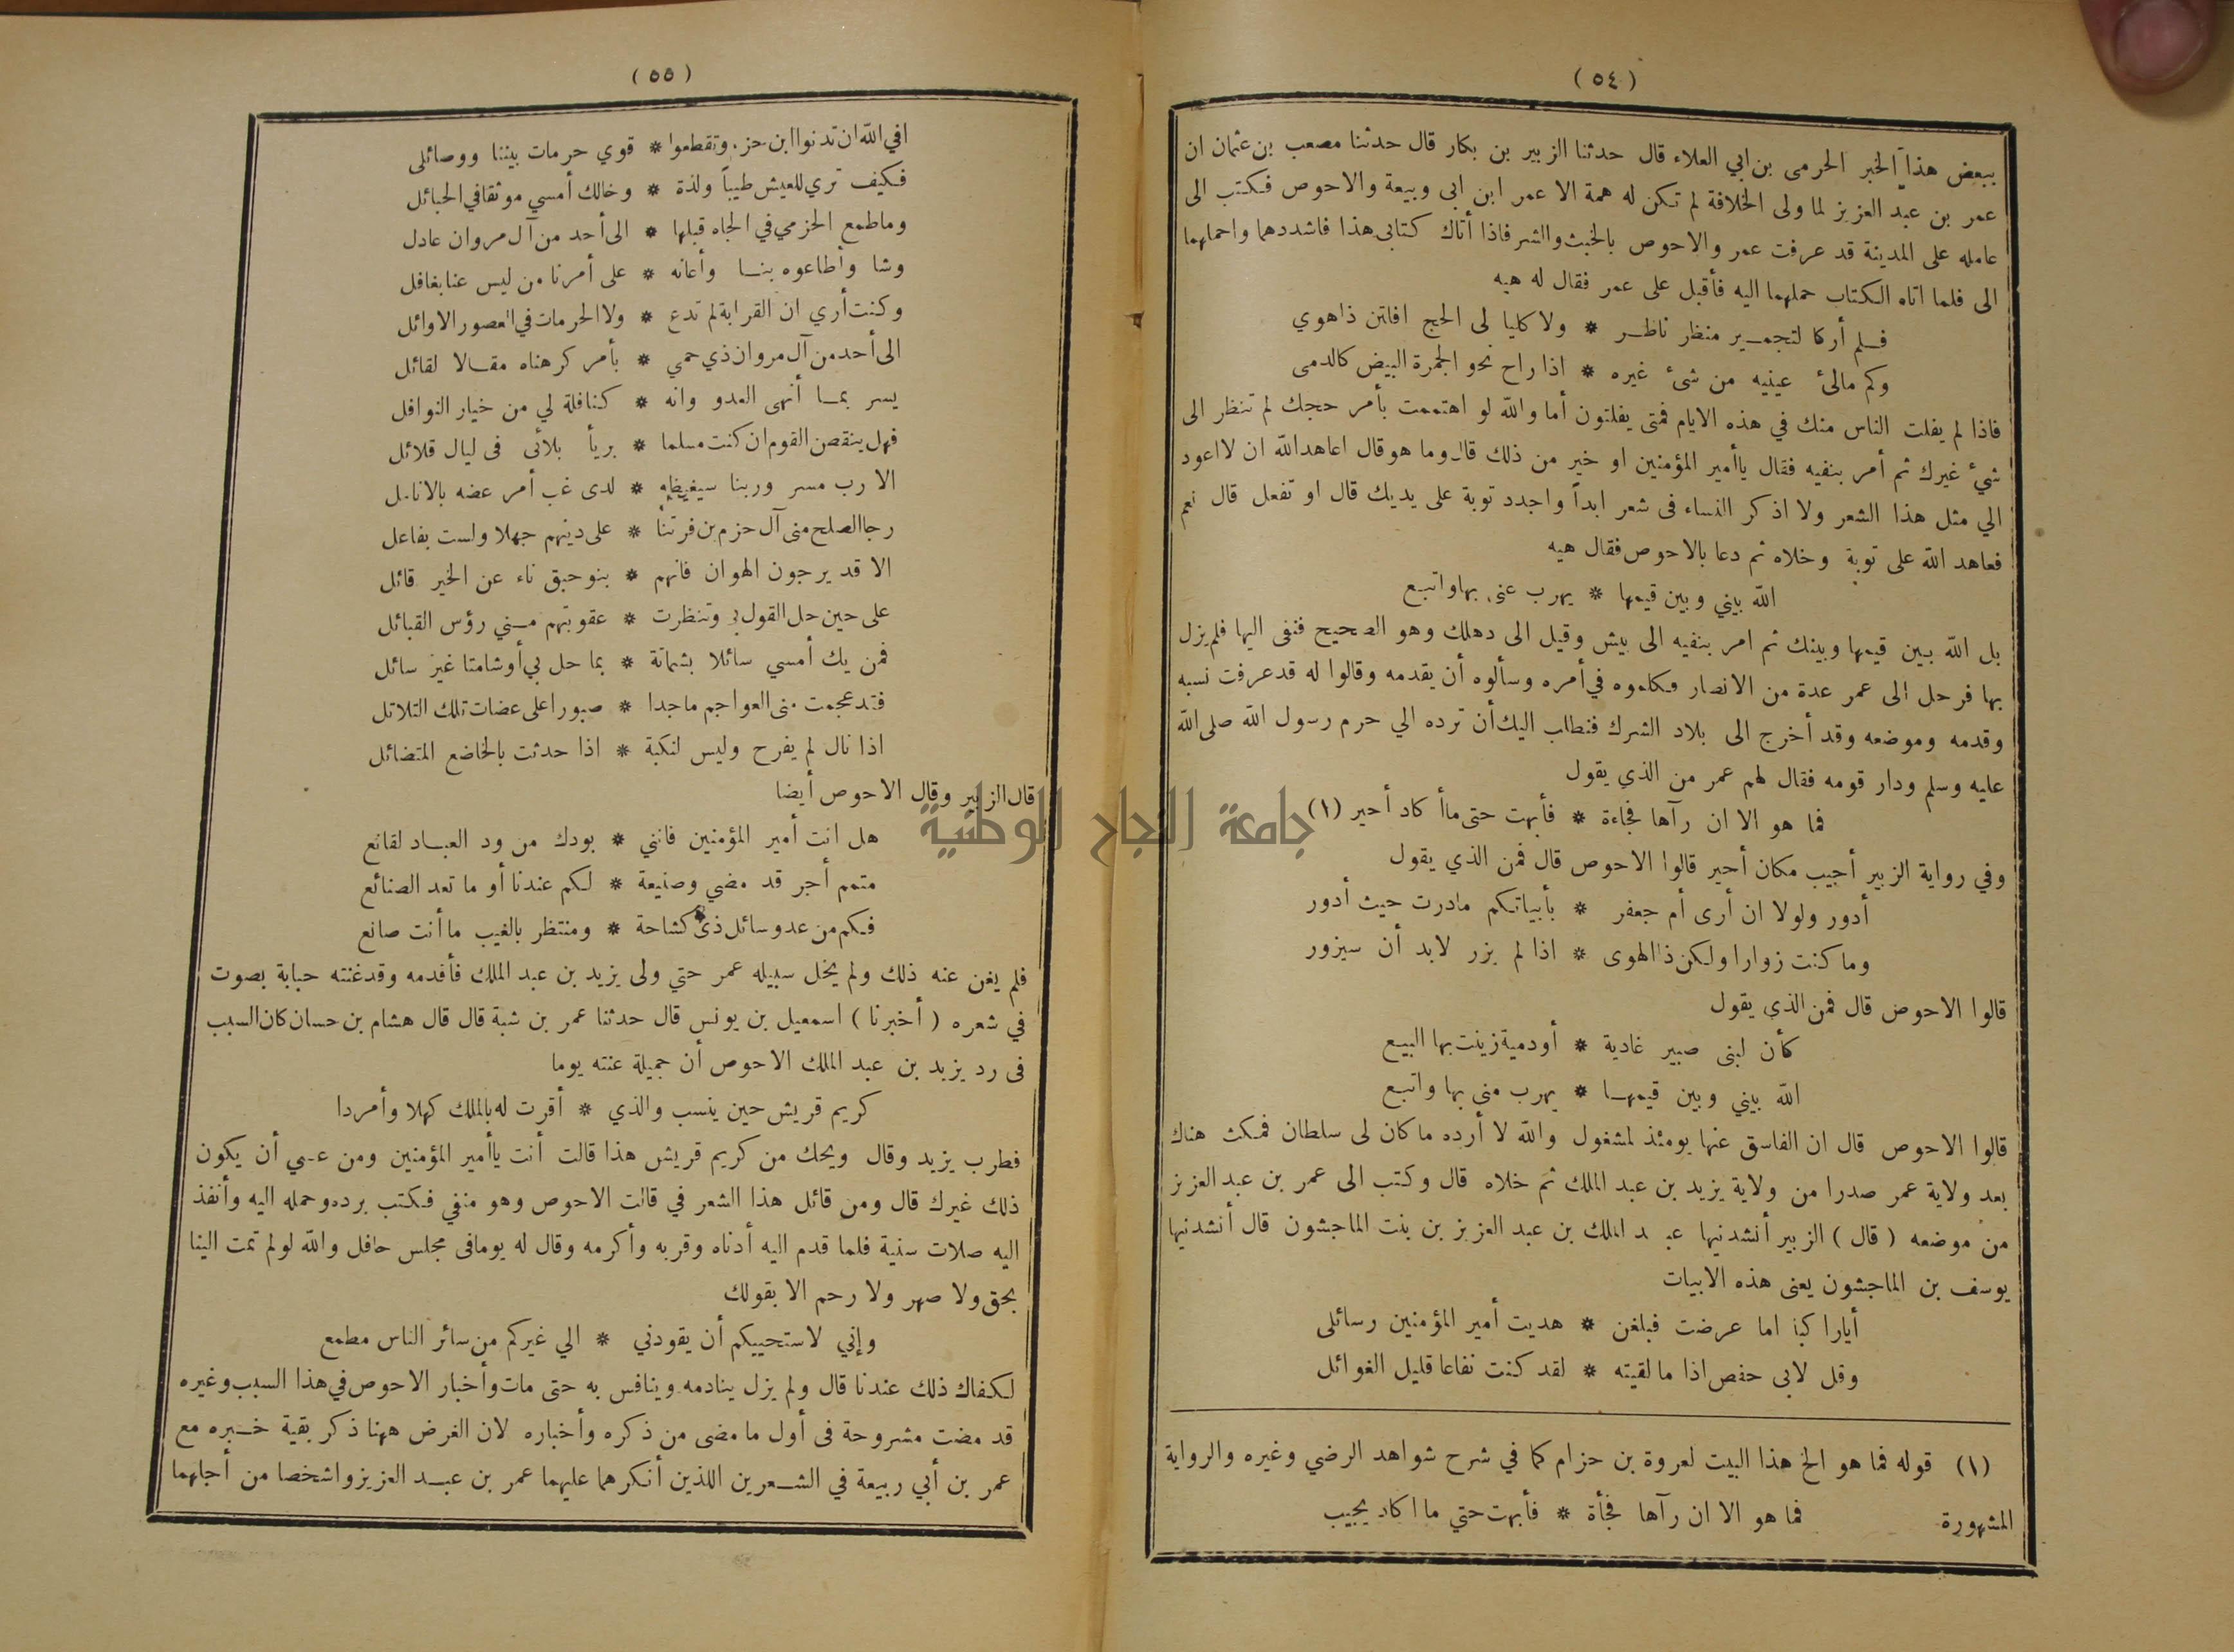 (٥٤)
ببعض هذا الخبر الحرمى بن ابي العلاء قال حدثنا الزبير بن بكار قال حدثنا مصعب بن عثمان ان
عمر بن عبد العزيز لما ولى الخلافة لم تكن له همة الا عمر ابن ابى وبيعة والاحوص فكتب الى
عامله على المدينة قد عرفت عمر والاحوص بالخبث والشر فاذا أتاك كتابى هذا فاشددهما واحملهما
الى فلما اتاه الكتاب حملهما اليه فأقبل على عمر فقال له هيه
فلم أركا لتجمير منظر ناظر * ولا كليا لى الحج افلتن ذا هوي
وكم مالئ عينيه من شئ غيره * اذا راح نحو الجمرة البيض كالدمى
فاذا لم يفلت الناس منك في هذه الايام فمتى يفلتون أما والله لو اهتممت بأمر حجك لم تنظر الى
شئ غيرك ثم أمر بنفيه فقال ياأمير المؤمنين او خير من ذلك قال وما هو قال اعاهد الله ان لااعود
الي مثل هذا الشعر ولا اذكر النساء فى شعر ابداً واجدد توبة على يديك قال او تفعل قال نعم
فعاهد الله على توبة وخلاه ثم دعا بالاحوص فقال هيه
الله بيني وبين قيمها * يهرب عنى بها واتبع
بل الله بين قيمها وبينك ثم امر بنفيه الى بيش وقيل الى دهلك وهو الصحيح فنفى اليها فلم يزل
بها فرحل الى عمر عدة من الانصار فكلموه في أمره وسألوه أن يقدمه وقالوا له قد عرفت نسبه
وقدمه وموضعه وقد أخرج الى بلاد الشرك فنطلب اليك أن ترده الي حرم رسول الله صلى الله
عليه وسلم ودار قومه فقال لهم عمر من الذي يقول
فما هو الا ان رآها فجاءة * فأبهت حتى ماأ كاد أحير (١)
وفي رواية الزبير أجيب مكان أحير قالوا الاحوص قال فمن الذي يقول
أدور ولولا ان أرى أم جعفر * بأبياتكم مادرت حيث أدور
وما كنت زوارا ولكن ذا الهوى * اذا لم يزر لابد أن سيزور
قالوا الاحوص قال فمن الذي يقول
كأن لبنى صبير غادية * أودمية زينت بها البيع
الله بيني وبين قيمها * يهرب منى بها واتبع
قالوا الاحوص قال ان الفاسق عنها يومئذ لمشغول والله لا أرده ما كان لى سلطان فمكث هناك
بعد ولاية عمر صدرا من ولاية يزيد بن عبد الملك ثم خلاه قال وكتب الى عمر بن عبد العزيز
من موضعه (قال) الزبير أنشدنيها عبد الملك بن عبد العزيز بن بنت الماجشون قال أنشدنيها
يوسف بن الماجشون يعنى هذه الابيات
أيارا كبا اما عرضت فبلغن * هديت أمير المؤمنين رسائلى
وقل لابى حفص اذا ما لقيته * لقد كنت نفاعا قليل الغوائل
(١) قوله فما هو الخ هذا البيت لعروة بن حزام كما في شرح شواهد الرضي وغيره والرواية
المشهورة فما هو الا ان رآها فجأة * فأبهت حتي ما اكاد يجيب
(٥٥)
افي الله ان تدنوا ابن حزم وتقطعوا * قوي حرمات بيننا ووصائلى
فكيف تري للعيش طيباً ولذة * وخالك أمسي موثقا في الحبائل
وما طمع الحزمي في الجاه قبلها * الى أحد من آل مروان عادل
وشا وأطاعوه بنا وأعانه * على أمرنا من ليس عنا بغافل
وكنت أري ان القرابة لم تدع * ولا الحرمات في العصور الاوائل
الى أحد من آل مروان ذي حمي * بأمر كرهناه مقالا لقائل
يسر بما أنهى العدو وانه * كنافلة لي من خيار النوافل
فهل ينقصن القوم ان كنت مسلما * بريأ بلائى فى ليال قلائل
الا رب مسر وربنا سيغيظه * لدى غب أمر عضه بالانامل
رجا الصلح منى آل حزم بن فرتنا * على دينهم جهلا ولست بفاعل
الا قد يرجون الهوان فانهم * بنو حبق ناء عن الخير قائل
على حين حل القول بى وتنظرت * عقوبتهم مني رؤس القبائل
فمن يك أمسي سائلا بشماتة * بما حل بي أو شامتا غير سائل
فقد عجمت منى العواجم ماجدا * صبورا على عضات تلك التلاتل
اذا نال لم يفرح وليس لنكبة * اذا حدثت بالخاضع المتضائل
قال الزبير وقال الاحوص أيضا
هل انت أمير المؤمنين فانني * بودك من ود العباد لقانع
متمم أجر قد مضي وصنيعة * لكم عندنا أو ما تعد الصنائع
فكم من عدو سائل ذى كشاحة * ومنتظر بالغيب ما أنت صانع
فلم يغن عنه ذلك ولم يخل سبيله عمر حتي ولى يزيد بن عبد الملك فأقدمه وقد غنته حبابة بصوت
في شعره (أخبرنا) اسمعيل بن يونس قال حدثنا عمر بن شبة قال قال هشام بن حسان كان السبب
فى رد يزيد بن عبد الملك الاحوص أن جميلة غنته يوما
كريم قريش حين ينسب والذي * أقرت له بالملك كهلا وأمردا
فطرب يزيد وقال ويحك من كريم قريش هذا قالت أنت ياأمير المؤمنين ومن عسي أن يكون
ذلك غيرك قال ومن قائل هذا الشعر في قالت الاحوص وهو منفي فكتب برده وحمله اليه وأنفذ
اليه صلات سنية فلما قدم اليه أدناه وقربه وأكرمه وقال له يوما فى مجلس حافل والله لو لم تمت الينا
بحق ولا صهر ولا رحم الا بقولك
وإني لاستحييكم أن يقودني * الي غيركم من سائر الناس مطمع
لكفاك ذلك عندنا قال ولم يزل ينادمه وينافس به حتى مات وأخبار الاحوص في هذا السبب وغيره
قد مضت مشروحة فى أول ما مضى من ذكره وأخباره لان الغرض ههنا ذكر بقية خبره مع
عمر بن أبي ربيعة في الشعرين اللذين أنكرهما عليهما عمر بن عبد العزيز واشخصا من أجلهما
جامعة النجاح الوطنية